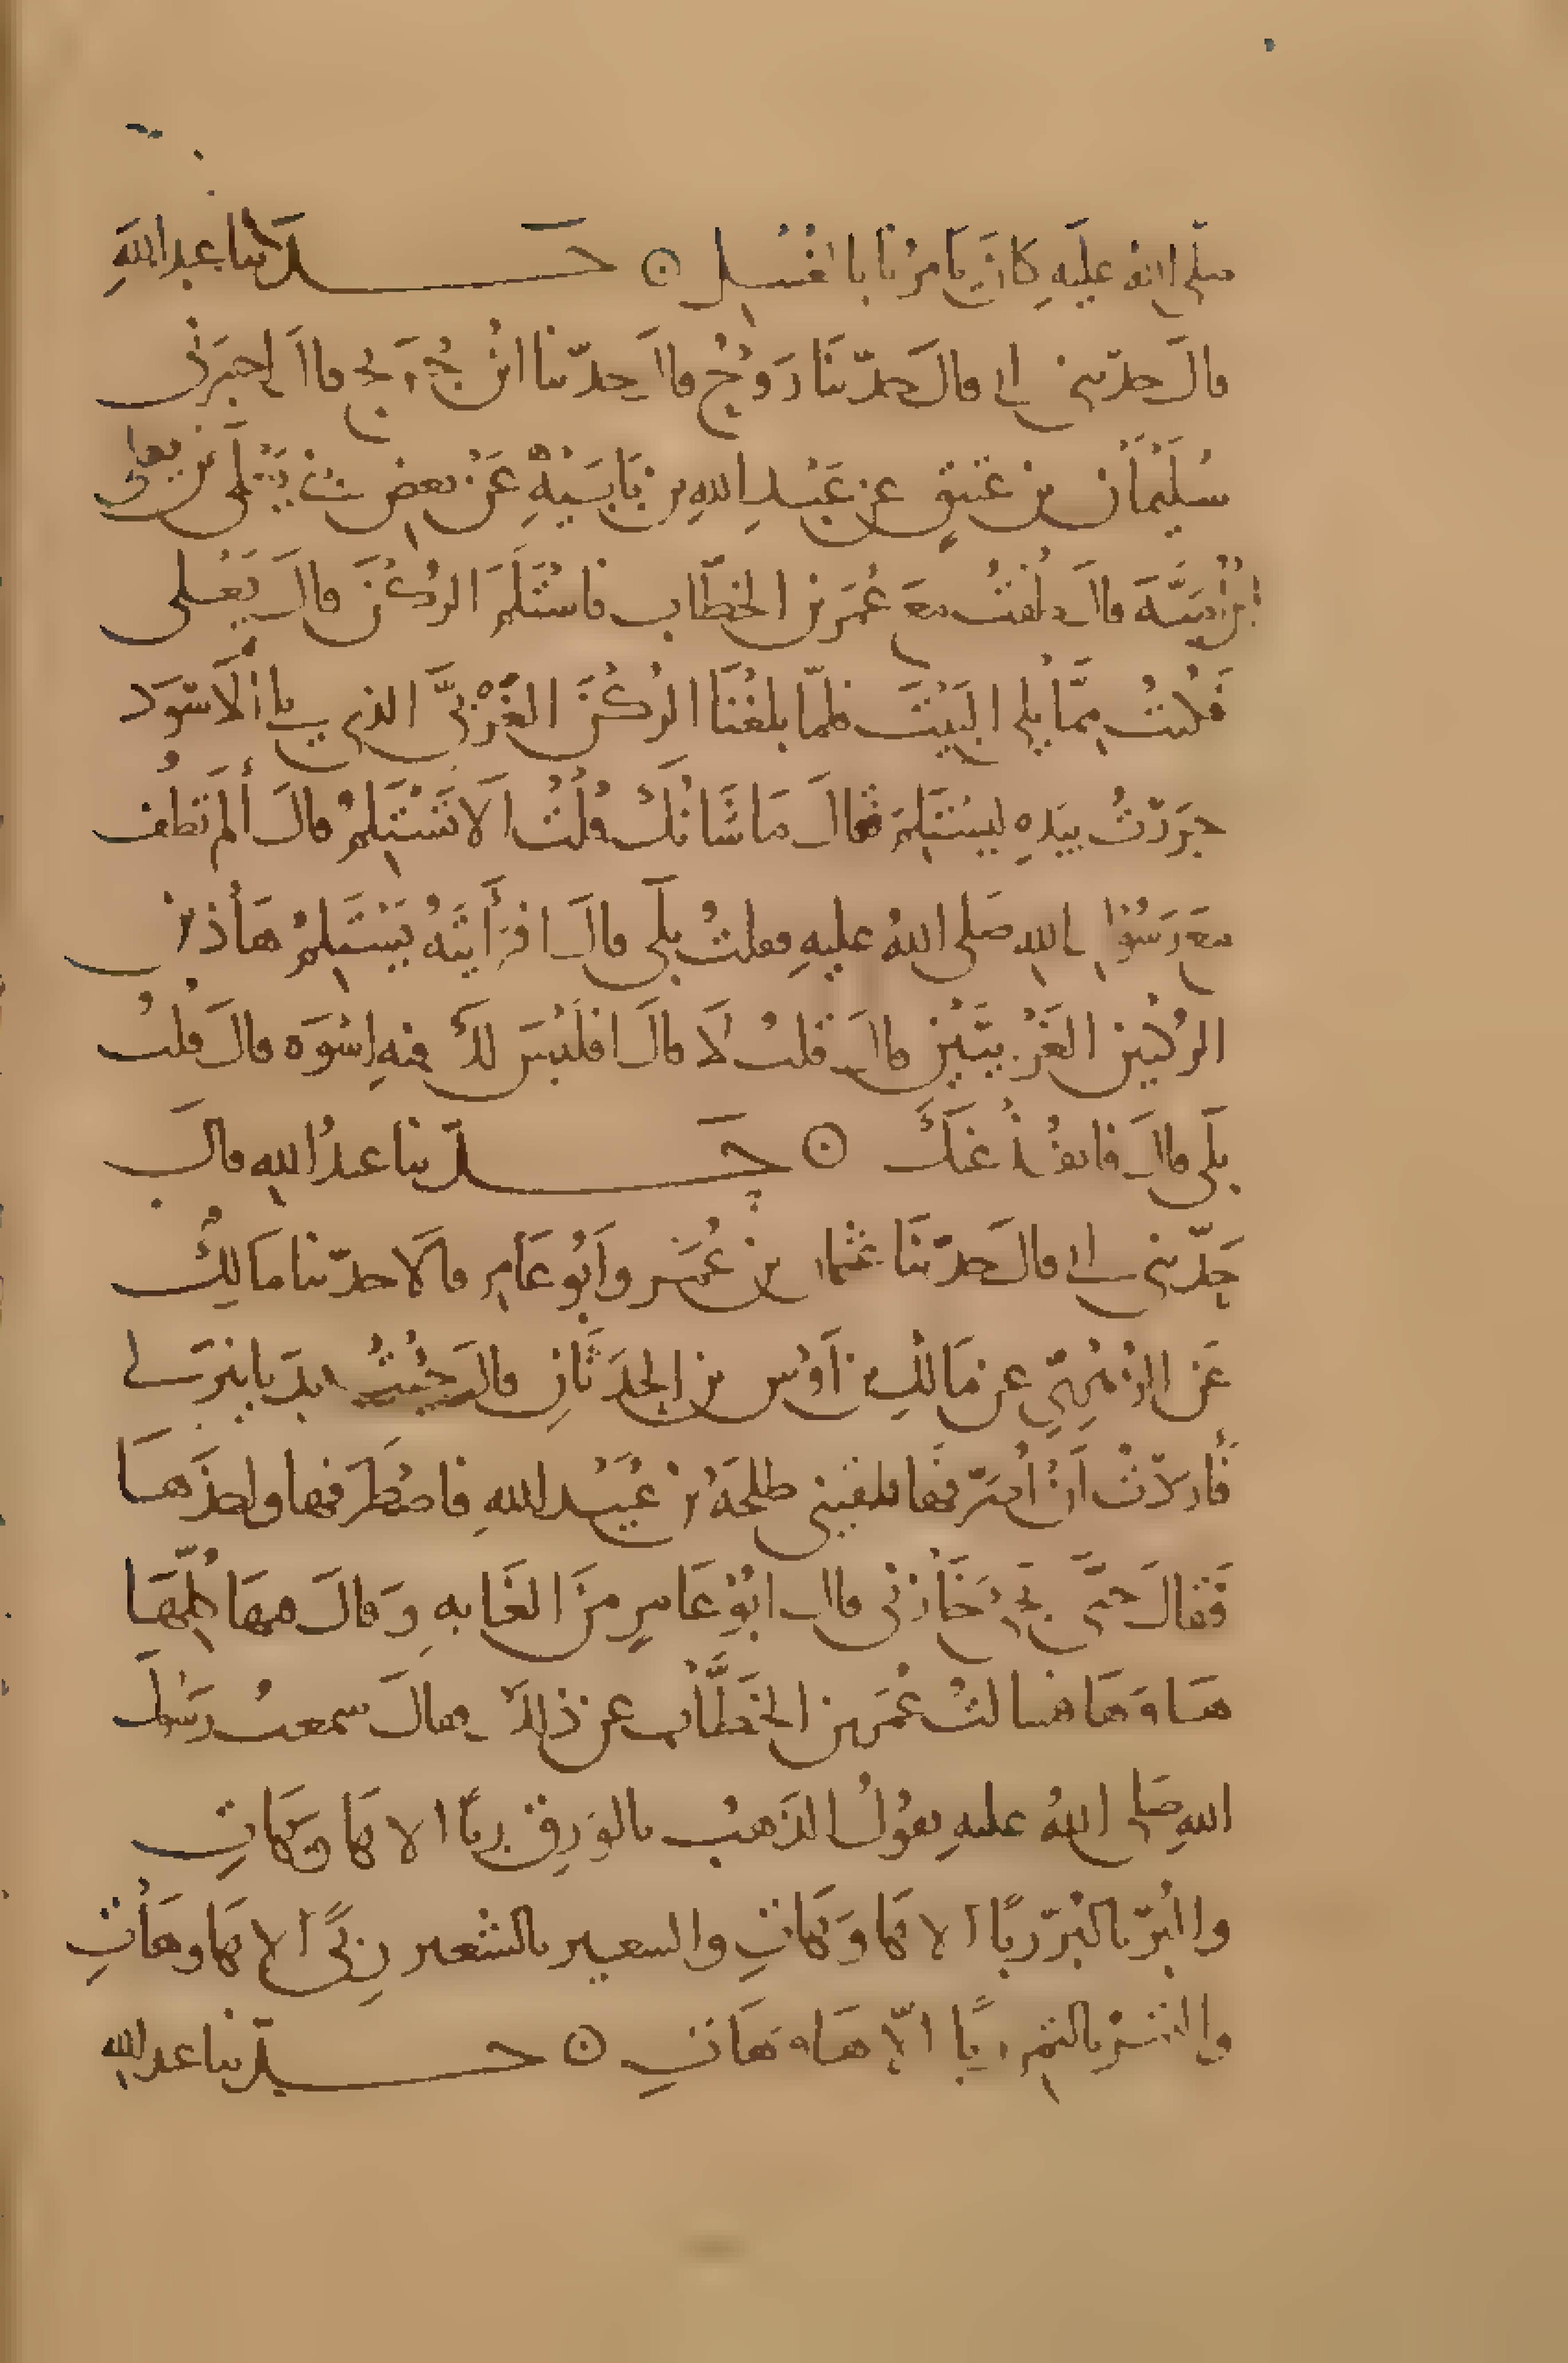 صلى الله عليه كان يامرنا بالغسل ⊙ حدثنا عبد الله
قال حدثني ابي قال حدثنا روح قال حدثنا ابن جريج قال اخبرني
سليمان بن عتيق عن عبد الله بن بابيه عن بعض بني يعلى عن يعلى
ابن امية قال طفت مع عمر بن الخطاب فاستلم الركن قال يعلى
فكنت مما يلي البيت فلما بلغنا الركن الغربي الذي يلي الاسود
جررت بيده ليستلم فقال ما شانك فقلت الا تستلم قال ألم تطف
مع رسول الله صلى الله عليه فقلت بلى قال افرأيته يستلم هاذين
الركنين الغربيين قال قلت لا قال افليس لك فيه اسوة قال قلت
بلى قال فانفذ عنك ⊙ حدثنا عبد الله قال
حدثني ابي قال حدثنا عثمان بن عمر وابو عامر قالا حدثنا مالك
عن الزهري عن مالك بن أوس بن الحدثان قال جئت بدنانير لي
فأردت أن أصرفها فلقيني طلحة بن عبيد الله فاصطرفها واخذها
فقال حتى يجيء خازني قال ابو عامر من الغابه وقال فيها كلها
ها وها فسالت عمر بن الخطاب عن ذلك فقال سمعت رسول
الله صلى الله عليه يقول الذهب بالورق ربا الا ها وهات
والبر بالبر ربا الا ها وهات والشعير بالشعير ربًى الا ها وهات
والتمر بالتمر ربا الا هاء وهات ⊙ حدثنا عبد الله